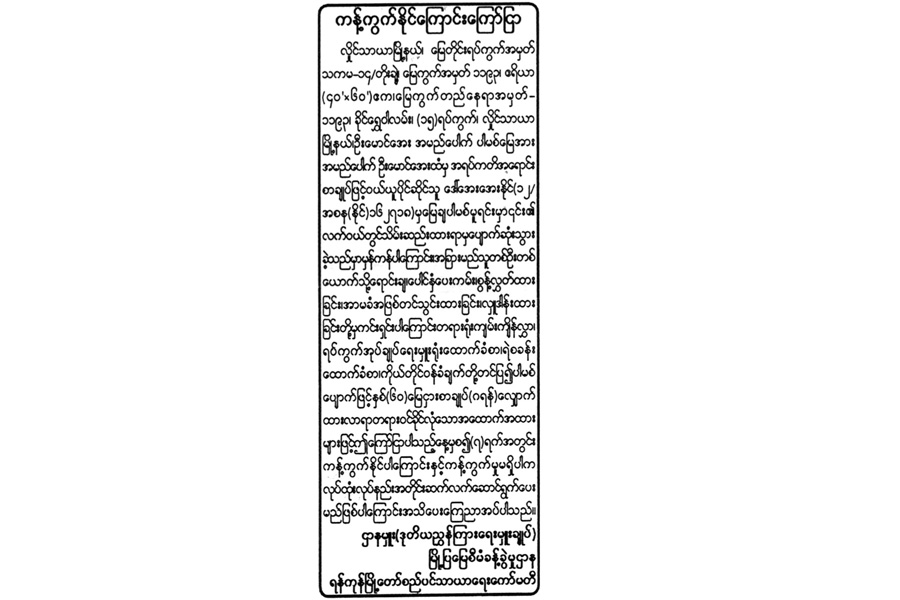 ကန့်ကွက်နိုင်ကြောင်းကြော်ငြာ
လှိုင်သာယာမြို့နယ်၊ မြေတိုင်းရပ်ကွက်အမှတ်
သကမ-၁၄/တိုးချဲ့၊ မြေကွက်အမှတ် ၁၁၉၃၊ ဧရိယာ
(၄၀'×၆၀')ဧက၊မြေကွက်တည်နေရာအမှတ်-
၁၁၉၃၊ ခိုင်ရွှေဝါလမ်း၊ (၁၅)ရပ်ကွက်၊ လှိုင်သာယာ
မြို့နယ်(ဦးမောင်အေး အမည်ပေါက် ပါမစ်မြေအား
အမည်ပေါက် ဦးမောင်အေးထံမှ အရပ်ကတိအရောင်း
စာချုပ်ဖြင့်ဝယ်ယူပိုင်ဆိုင်သူ ဒေါ်အေးအေးနိုင်(၁၂/
အစန(နိုင်)၁၆၂၇၁၈)မှမြေချပါမစ်မူရင်းမှာ၎င်း၏
လက်ဝယ်တွင်သိမ်းဆည်းထားရာမှပျောက်ဆုံးသွား
ခဲ့သည်မှာမှန်ကန်ပါကြောင်း၊အခြားမည်သူတစ်ဦးတစ်
ယောက်သို့ရောင်းချ၊ပေါင်နှံပေးကမ်း၊စွန့်လွှတ်ထား
ခြင်း၊အာမခံအဖြစ်တင်သွင်းထားခြင်း၊လှူဒါန်းထား
ခြင်းတို့မှကင်းရှင်းပါကြောင်းတရားရုံးကျမ်းကျိန်လွှာ၊
ရပ်ကွက်အုပ်ချုပ်ရေးမှူးရုံးထောက်ခံစာ၊ရဲစခန်း
ထောက်ခံစာ၊ကိုယ်တိုင်ဝန်ခံချက်တို့တင်ပြ၍ပါမစ်
ပျောက်ဖြင့်နှစ်(၆၀)မြေငှားစာချုပ်(ဂရန်)လျှောက်
ထားလာရာတရားဝင်ခိုင်လုံသောအထောက်အထား
များဖြင့်ဤကြော်ငြာပါသည့်နေ့မှစ၍(၇)ရက်အတွင်း
ကန့်ကွက်နိုင်ပါကြောင်းနှင့်ကန့်ကွက်မှုမရှိပါက
လုပ်ထုံးလုပ်နည်းအတိုင်းဆက်လက်ဆောင်ရွက်ပေး
မည်ဖြစ်ပါကြောင်းအသိပေးကြေညာအပ်ပါသည်။
ဌာနမှူး(ဒုတိယညွှန်ကြားရေးမှူးချုပ်)
မြို့ပြမြေစီမံခန့်ခွဲမှုဌာန
ရန်ကုန်မြို့တော်စည်ပင်သာယာရေးကော်မတီ